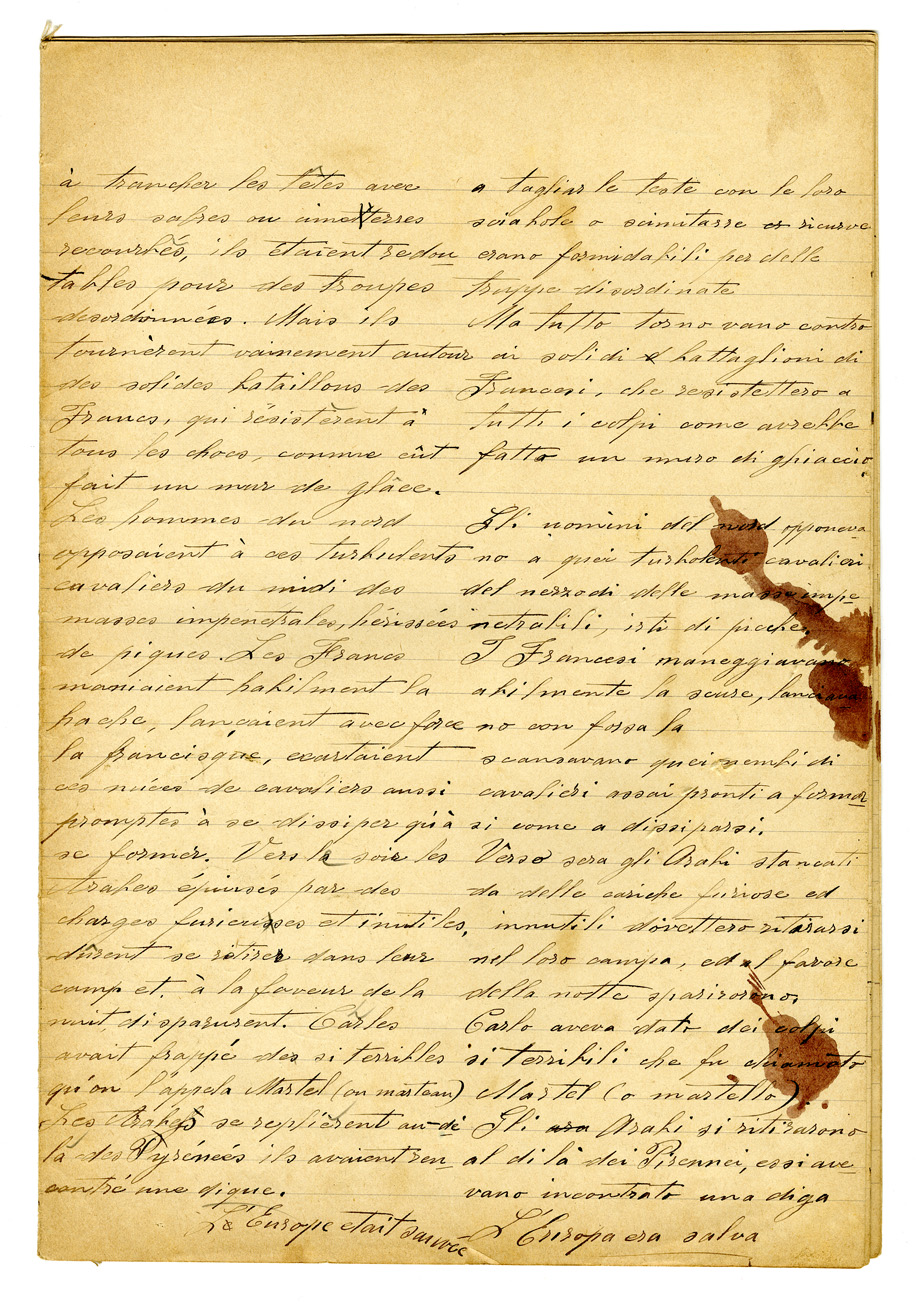 à trancher les têtes avec
leurs sabres ou cimeterres
recourbés, ils étaient redou
tables pour des troupes
desordonnées. Mais ils
tournèrent vainement autour
des solides bataillons des
Francs, qui résistèrent à
tous les chocs, comme eût
fait un mur de glâce.
Les hommes du nord
opposaient à ces turbulents
cavaliers du midi des
masses impenetrales, hérissées
de piques. Les Francs
maniaient habilment la
hache, lançaient avec force
la francisque, ecartaient
ces nuées de cavaliers aussi
promptes à se dissiper qu'à
se former. Vers le soir les
Arabes épuisés par des
charges furieuses et inutiles,
dûrent se retirer dans leur
camp et, à la faveur de la
nuit, disparurent. Carles
avait frappé des si terribles
qu'on l'appela Martel (ou marteau)
Les Arabes se replièrent au-de
là des Pyrénées ils avaient ren
contré une dique.
L'Europe etait sauvée
a tagliar le teste con le loro
sciabole o scimitarre er ricurve
erano formidabili per delle
truppe disordinate
Ma tutto torno vano contro
ai solidi battaglioni di
Francesi, che resistettero a
tutti i colpi come avrebbe
fatto un muro di ghiaccio.
Gli uomini del nord opponeva
no a quei turbolenti cavalieri
del nezzodi delle masse impe
netrabili, irti di picche.
I Francesi maneggiavano
abilmente la scure, lanciava
no con forsa la
scansavano quei nembi di
cavalieri assai pronti a formar
si come a dissiparsi.
Verso sera gli Arabi stancati
da delle cariche furiose ed
innutili dovettero ritirarsi
nel loro campa, ed al favore
della notte sparirorono.
Carlo aveva dato dei colpi
si terribili che fu chiamato
Martel (o martello).
Gli ara Arabi si ritirarono
al di là dei Pirennei, essi ave
vano incontrato una diga
L'Europa era salva